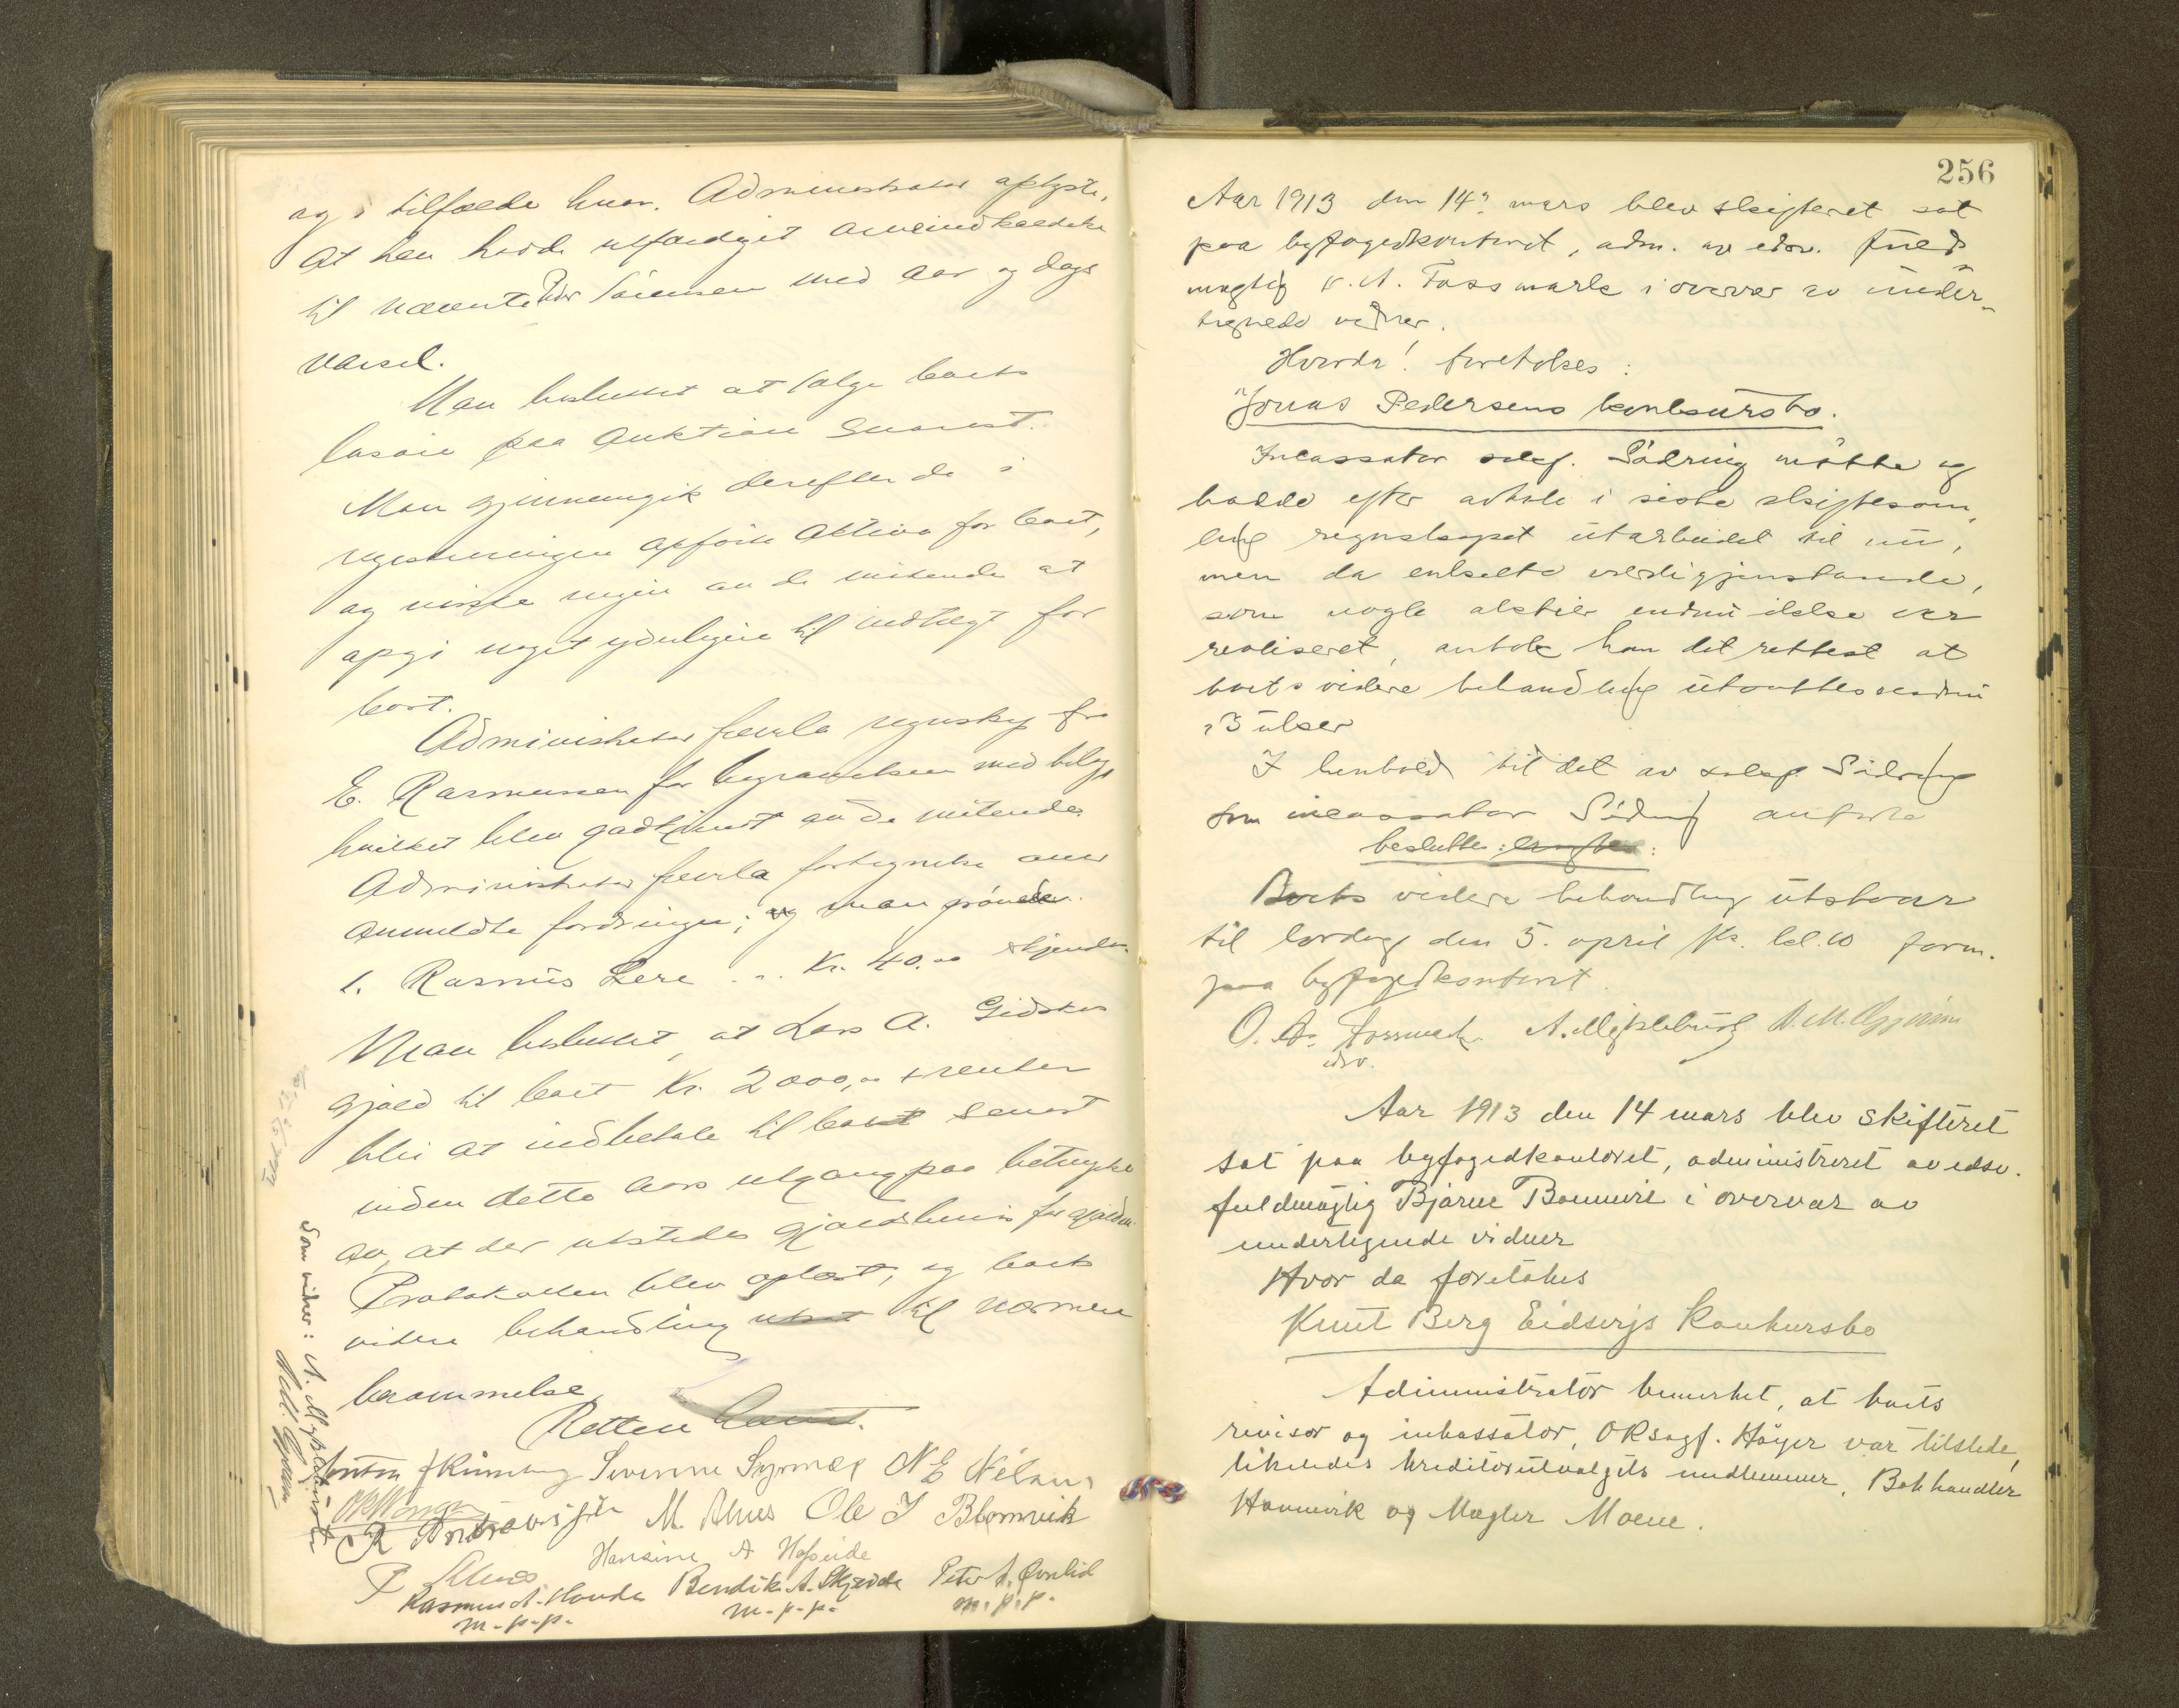 og i tilfælde hvor. Administrator oplyste,
at han havde utfærdiget arveindkaldelse
til nævnte Peder Paulsen med aar og dags
varsel.
Man besluttet at sælge boets
løsøre paa auktion snarest.
Man gjennemgik derefter de i
registreringen opførte aktiva for boet,
og visste ingen av de møtende at
opgi noget yderligere til indtægt for
boet.
Administrator fremla regnskap fra
E. Rasmussen for begravelsen med bilag
hvilket blev godkjendt av de møtende
Administrator fremla fortegnelse over
anmeldte fordringer; og man prøvede
1. Rasmus Lere .. Kr. 40.00 erkjendes.
Man besluttet, at Lars A. Gidskes
gjæld til boet Kr. 2000,00 + renter
blir at indbetale til boet senest
inden dette aars utgang paa betingelse
av, at der utstedes gjældsbevis for gjælden.
Protokollen blev oplæst, og boets
videre behandling utsat til nærmere
berammelse.
Retten hævet.
Severine Synnes N E
M. Alnes Ole J Blomvik
P Alnes Hansine A Hofseide
Rasmus A. Bendik A. Skjelde Peter A. Qvalid
m.p.p. m.p.p. m.p.p.
Som vidner: A. Myklebust
256
Aar 1913 den 14. mars blev skifteret sat
paa byfogedkontoret, adm. av edsv. fuld-
mægtig O. A. Fossmark i overvær av under-
tegnede vidner.
Hvorda! foretokes:
Jonas Pedersens konkursbo.
Incassator saksf. Sødring møtte og
hadde efter avtale i siste skiftesam-
ling regnskapet utarbeidet til nu,
men da enkelte verdigjenstande,
som nogle aktier endnu ikke var
realiseret, antok han det rettest at
boets videre behandling utsattes endnu
3 uker
I henhold til det av saksf. Sødring
som incassator Sødring anførte
beslutte:
Boets videre behandling utstaar
til lørdag den 5. april ks. kl. 10 form.
paa byfogedkontoret.
O. A. Fossmark A. Myklebust
edsv.
Aar 1913 den 14 mars blev skifteret
sat paa byfogedkontoret, administreret av edsv.
fuldmægtig Bjarne Bonnevie i overvær av
undertegnede vidner
Hvor da foretokes
Knut Berg Eidsvigs Konkursbo
Administrator bemerket, at boets
revisor og inkassator, ORsagf. Høyer var tilstede,
likeledes kreditorutvalgets medlemmer, Bokhandler
Havnevik og Mægler Moene.